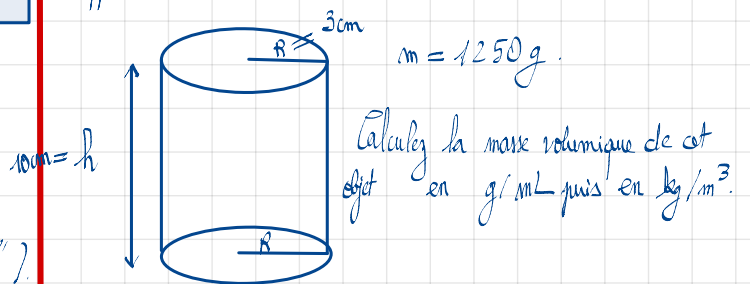 R = 3cm
m = 1250g.
10cm = h
Calculez la masse volumique de cet
objet en g/mL puis en kg/m³.
R